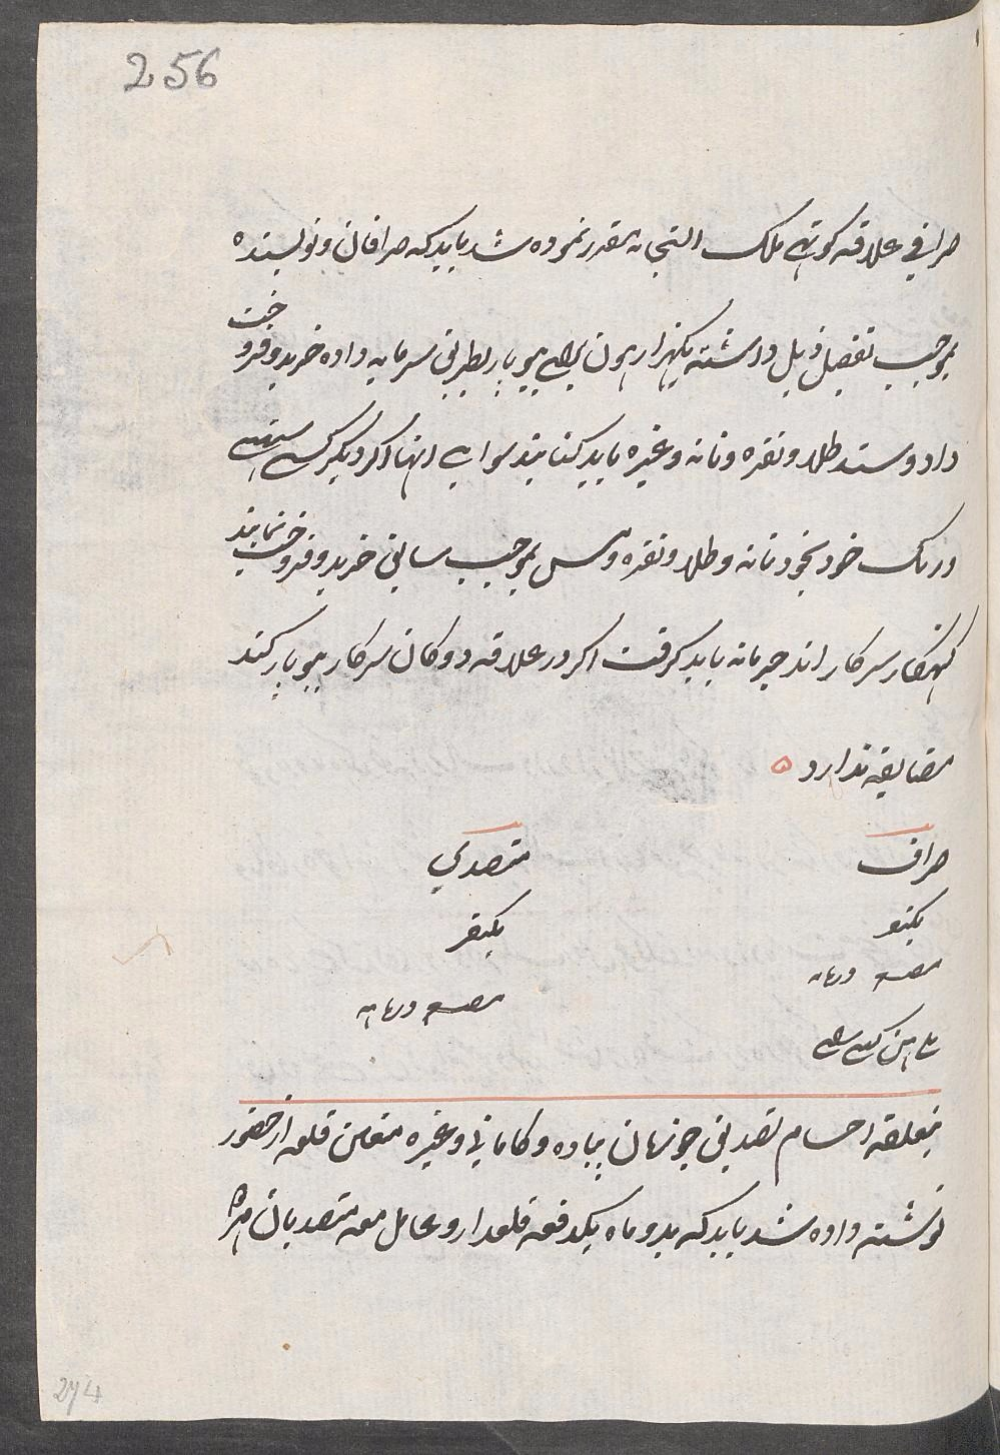 256
صرافی علاقه کوتهی ملک التجار مقرر نموده شد باید که صرافان و نویسنده
بموجب تفصیل ذیل داشته یکهزار هون برای بیوپار بطریق سرمایه داده خرید و فروخت
داد وستد طلا و نقره و نانه و غیره باید کنانید سوای انها اگر دیگر کسی
خود بخود نانه و طلا و نقره و مس بموجب سابق خرید و فروخت نمایند
گنهکار سرکار اند جرمانه باید گرفت اگر در علاقه دوکان سرکار بیوپار کنند
مضایقه ندارد
صراف
متصدی
یکنفر
یکنفر
درماهه
درماهه
متعلقه احشام تصدیق جوانان پیاده و کاماتی و غیره متعین قلعه از حضور
نوشته داده شد باید که بدو ماه یکدفعه قلعدار و عامل معه متصدیان
274